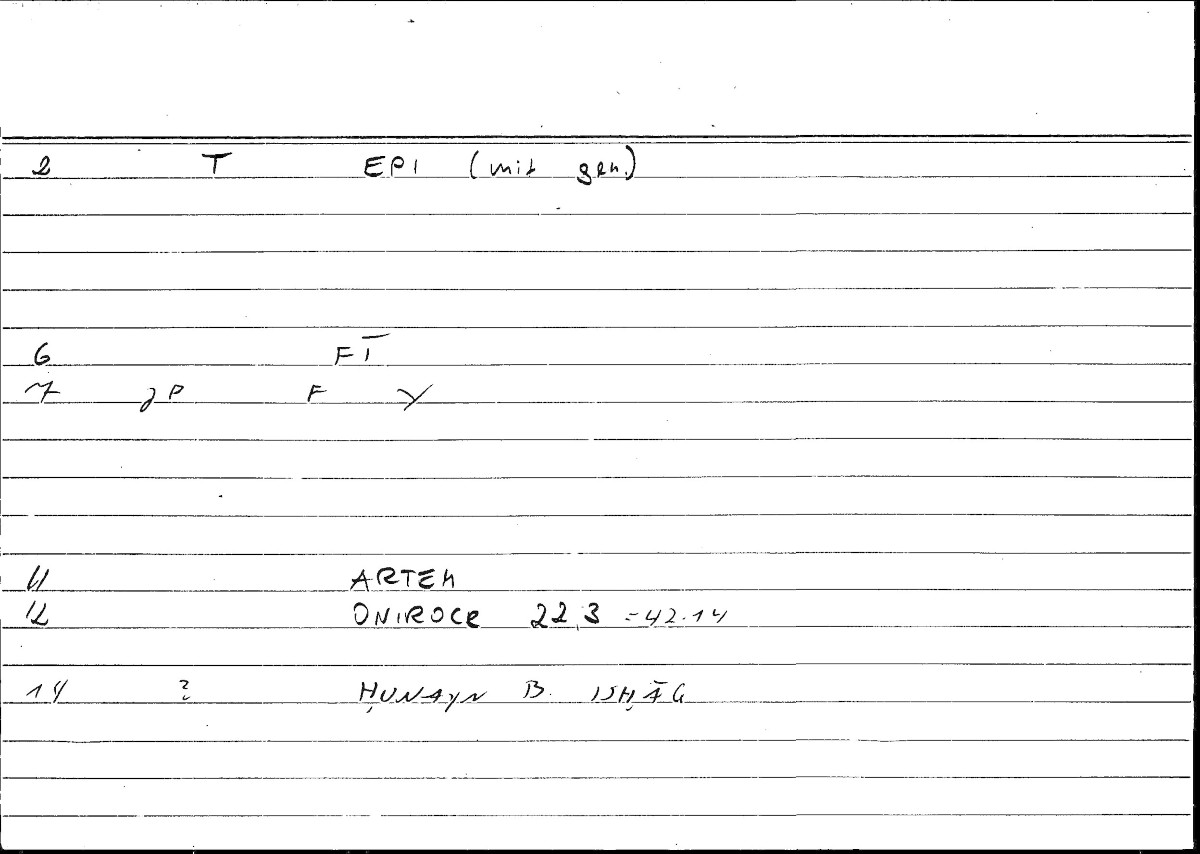 2 T EPI (mit gen.)
6 FĪ
7 γP F Y
11 ARTEM
12 ONIROCR 22,3 = 42.14
14 ? ḤUNAYN B. ISḤĀG